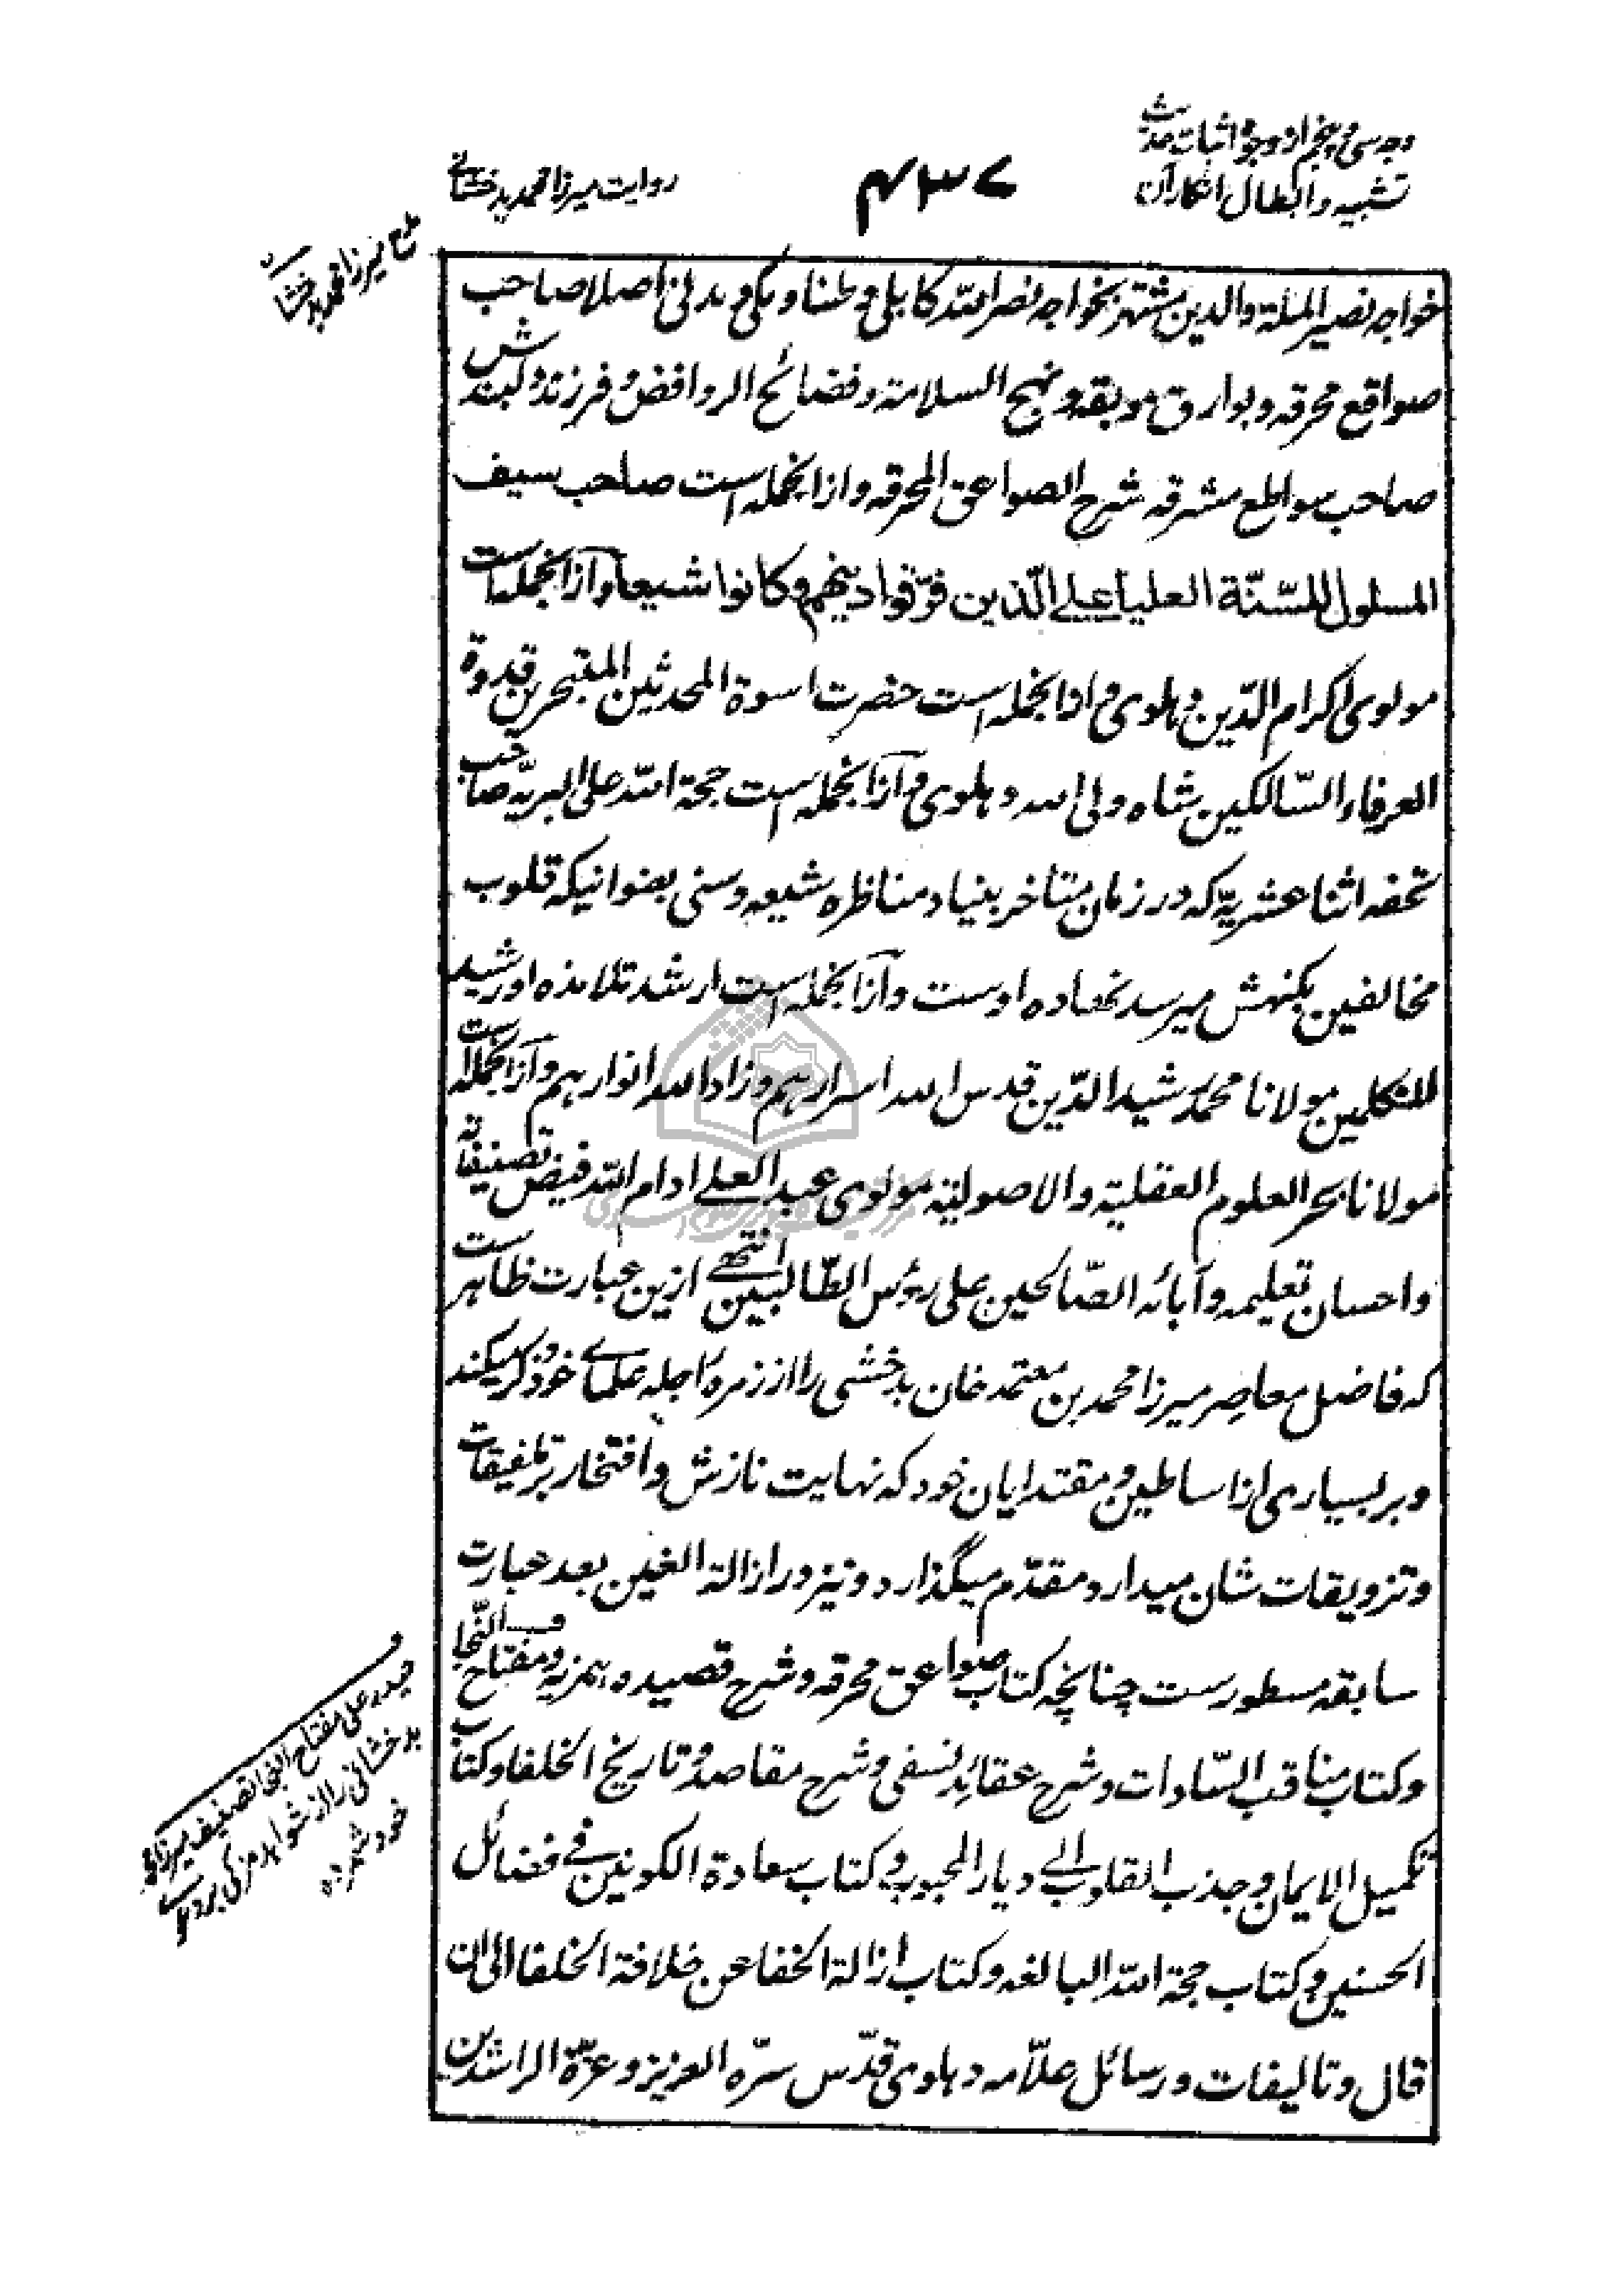 وجه سی و پنجم از وجوه اثبات حدیث
تشبیه و ابطال انکار آن
۴۳۷
روایت میرزا محمد بدخشانی
مدح میرزا محمد بدخشانی
خواجه نصیر الملة والدین مشتهر بخواجه نصر الله کابلی وطنا و مکی و مدنی اصلا صاحب
صواقع محرقه و بوارق موبقه و نهج السلامة و فضائح الروافض و فرزند دلبندش
صاحب سواطع مشرقه شرح الصواعق المحرقه و ازانجمله است صاحب سیف
المسلول للسّنّة العلیا علی الّذین فرّقوا دینهم و کانوا شیعا و ازانجمله است
مولوی اکرام الدّین دهلوی و ازانجمله است حضرت اسوة المحدثین المتبحرین قدوة
العرفاء السّالکین شاه ولی الله دهلوی و ازانجمله است حجة الله علی البریّه صاحب
تحفه اثنا عشریّه که در زمان متأخر بنیاد مناظره شیعه و سنی بعنوانیکه قلوب
مخالفین بکنهش میرسد نهاده اوست و ازانجمله است ارشد تلامذه او رشید
المتکلمین مولانا محمد رشید الدّین قدس الله اسرارهم و زاد الله انوارهم و ازانجمله است
مولانا بحر العلوم العقلیة والاصولیة مولوی عبد العلی ادام الله فیض تصنیفاته
و احسان تعلیمه و آبائه الصّالحین علی رؤس الطّالبین انتهی ازین عبارت ظاهر است
که فاضل معاصر میرزا محمد بن معتمد خان بدخشی را از زمره اجله علمای خود ذکر میکند
و بر بسیاری از اساطین و مقتدایان خود که نهایت نازش و افتخار بر تلفیقات
و تزویقات شان میدارد مقدّم میگذارد و نیز در ازالة الغین بعد عبارت
سابقه مسطورست چنانچه کتاب صواعق محرقه و شرح قصیده همزیه و مفتاح النّجا
و کتاب مناقب السّادات و شرح عقائد نسفی و شرح مقاصد و تاریخ الخلفا و کتاب
تکمیل الایمان و جذب القلوب الی دیار المحبوب و کتاب سعادة الکونین فی فضائل
الحسنین و کتاب حجة الله البالغه و کتاب ازالة الخفا عن خلافة الخلفا الی ان
قال و تالیفات و رسائل علّامه دهلوی قدّس سرّه العزیز و عزّة الراشدین
حیدر علی مفتاح النجا تصنیف میرزا محمد
بدخشانی را از شواهد مزکی بر
خود شمرده